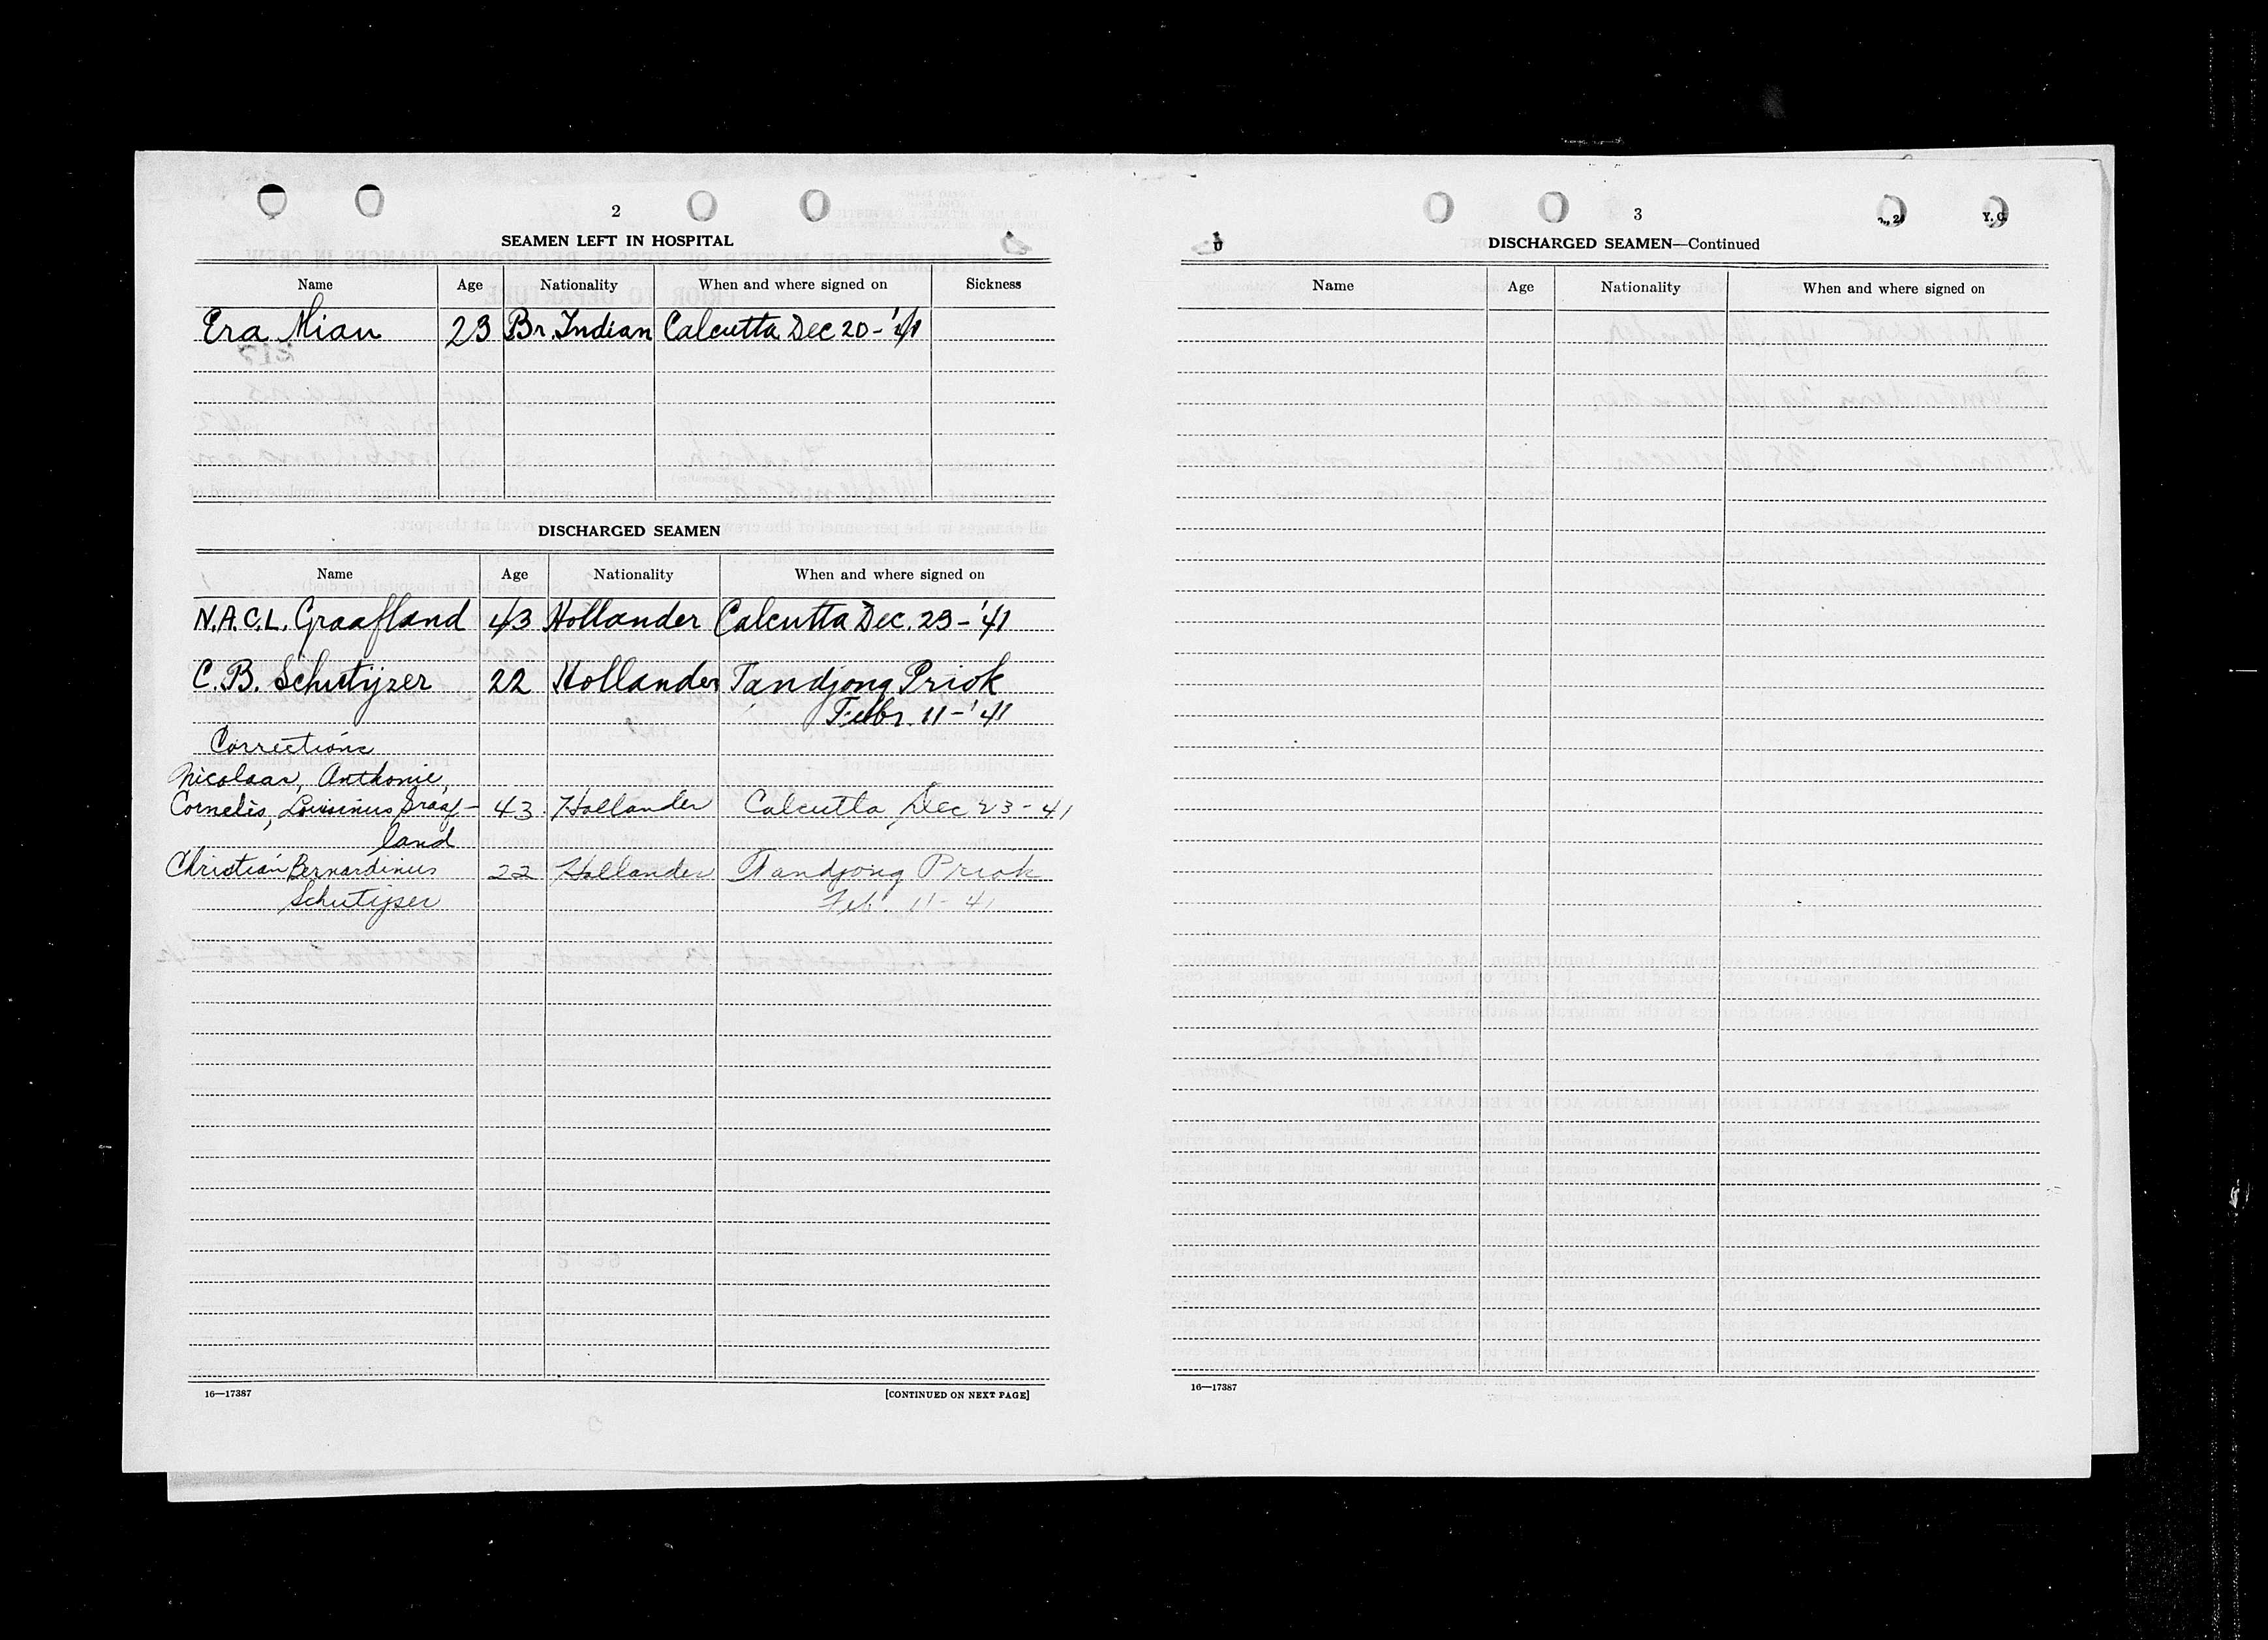 2
SEAMEN LEFT IN HOSPITAL
Name Age Nationality When and where signed on Sickness
Era Mian 23 Br. Indian Calcutta Dec 20-'41
DISCHARGED SEAMEN
Name Age Nationality When and where signed on
N.A.C.L. Graafland 43 Hollander Calcutta Dec. 23-'41
C.B. Schutijzer 22 Hollander Tandjong Priok
Febr. 11-'41
Corrections
Nicolaas, Anthonie,
Cornelis, Louisinus Graaf- 43 Hollander Calcutta Dec 23-41
land
Christian Bernardinus 22 Hollander Tandjong Priok
Schutijser Feb. 11-41
16—17387 [CONTINUED ON NEXT PAGE]
3
DISCHARGED SEAMEN—Continued
Name Age Nationality When and where signed on
16—17387